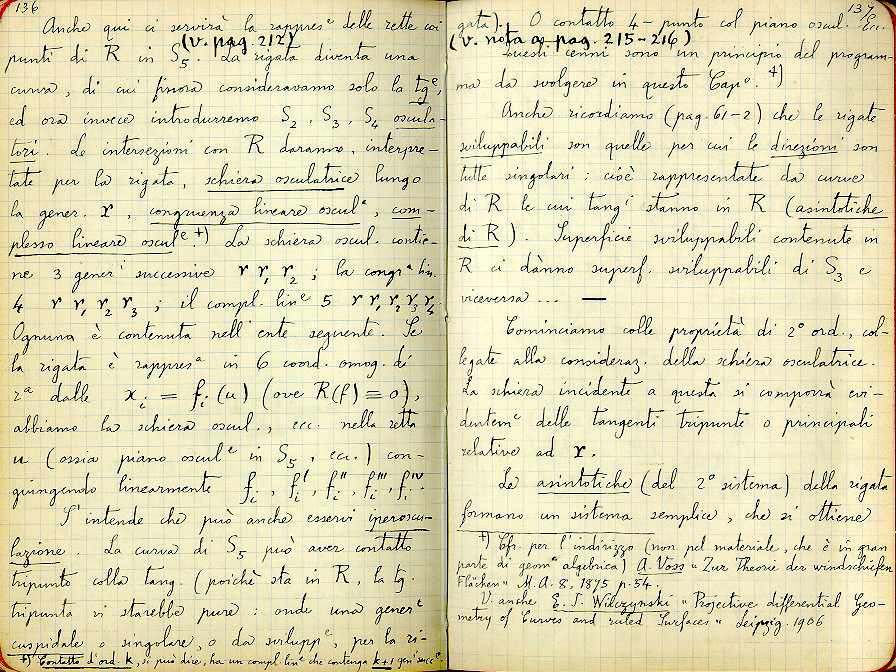 136
Anche qui ci servirà la rappres^e delle rette coi
(v. pag. 212)
punti di R in S5. La rigata diventa una
curva, di cui finora consideravamo solo la tg^e,
ed ora invece introdurremo S2, S3, S4 oscula-
tori. Le intersezioni con R daranno, interpre-
tate per la rigata, schiera osculatrice lungo
la gener. r, congruenza lineare oscul^e, com-
plesso lineare oscul^e +) La schiera oscul. contie-
ne 3 gener^i successive r r1 r2 ; la congr^a lin.
4 r r1 r2 r3 ; il compl. lin^e 5 r r1 r2 r3 r4.
Ognuna è contenuta nell'ente seguente. Se
la rigata è rappres^a in 6 coord. omog. di
r^a dalle xi = fi(u) (ove R(f) ≡ 0),
abbiamo la schiera oscul., ecc. nella retta
u (ossia piano oscul^e in S5, ecc.) con-
giungendo linearmente fi, fi', fi'', fi''', fi^IV.
S'intende che può anche esservi iperoscu-
lazione. La curva di S5 può aver contatto
tripunto colla tang. (poichè sta in R, la tg.
tripunta vi starebbe pure : onde una gener^e
cuspidale o singolare, o da svilupp^e, per la ri-
+) Contatto d'ord. k, si può dire, ha un compl. lin^e che contenga k+1 gen^i succ^e.
137
gata). O contatto 4-punto col piano oscul. Ecc.
(v. nota a pag. 215-216)
Questi cenni sono un principio del program-
ma da svolgere in questo Cap^o. +)
Anche ricordiamo (pag. 61-2) che le rigate
sviluppabili son quelle per cui le direzioni son
tutte singolari : cioè rappresentate da curve
di R le cui tang^i stanno in R (asintotiche
di R). Superficie sviluppabili contenute in
R ci dànno superf. sviluppabili di S3 e
viceversa ... —
Cominciamo colle proprietà di 2° ord., col-
legate alla consideraz. della schiera osculatrice.
La schiera incidente a questa si comporrà evi-
dentem^e delle tangenti tripunte o principali
relative ad r.
Le asintotiche (del 2° sistema) della rigata
formano un sistema semplice, che si ottiene
+) Cfr. per l'indirizzo (non pel materiale, che è in gran
parte di geom^a algebrica) A. Voss "Zur Theorie der windschiefen
Flächen" M.A. 8, 1875 p. 54.
V. anche E. J. Wilczynski "Projective differential Geo-
metry of Curves and ruled Surfaces" Leipzig. 1906